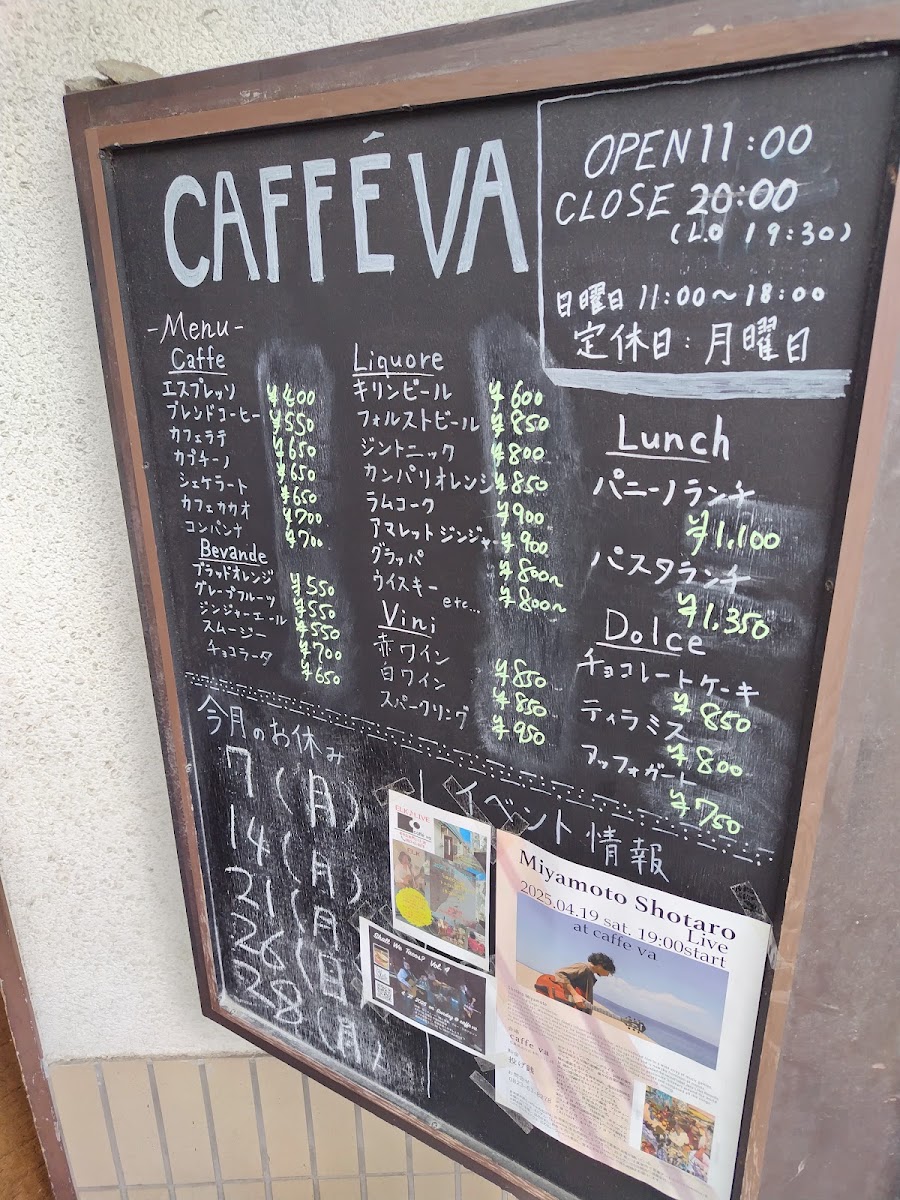 CAFFÉ VA
OPEN 11:00
CLOSE 20:00
(L.O 19:30)
日曜日 11:00〜18:00
定休日:月曜日
-Menu-
Caffe
エスプレッソ ¥400
ブレンドコーヒー ¥550
カフェラテ ¥650
カプチーノ ¥650
シェケラート ¥650
カフェカカオ ¥700
コンパンナ ¥700
Bevande
ブラッドオレンジ ¥550
グレープフルーツ ¥550
ジンジャーエール ¥550
スムージー ¥700
チョコラータ ¥650
Liquore
キリンビール ¥600
フォルストビール ¥850
ジントニック ¥800
カンパリオレンジ ¥850
ラムコーク ¥900
アマレットジンジャー ¥900
グラッパ ¥800〜
ウイスキー ¥800〜
etc...
Vini
赤ワイン ¥850
白ワイン ¥850
スパークリング ¥950
Lunch
パニーノランチ
¥1,100
パスタランチ
¥1,350
Dolce
チョコレートケーキ
¥850
ティラミス
¥800
アッフォガート
¥750
今月のお休み
7(月)
14(月)
21(月)
26(日)
28(月)
イベント情報
Miyamoto Shotaro
Live
2025.04.19 sat. 19:00start
at caffe va
caffe va